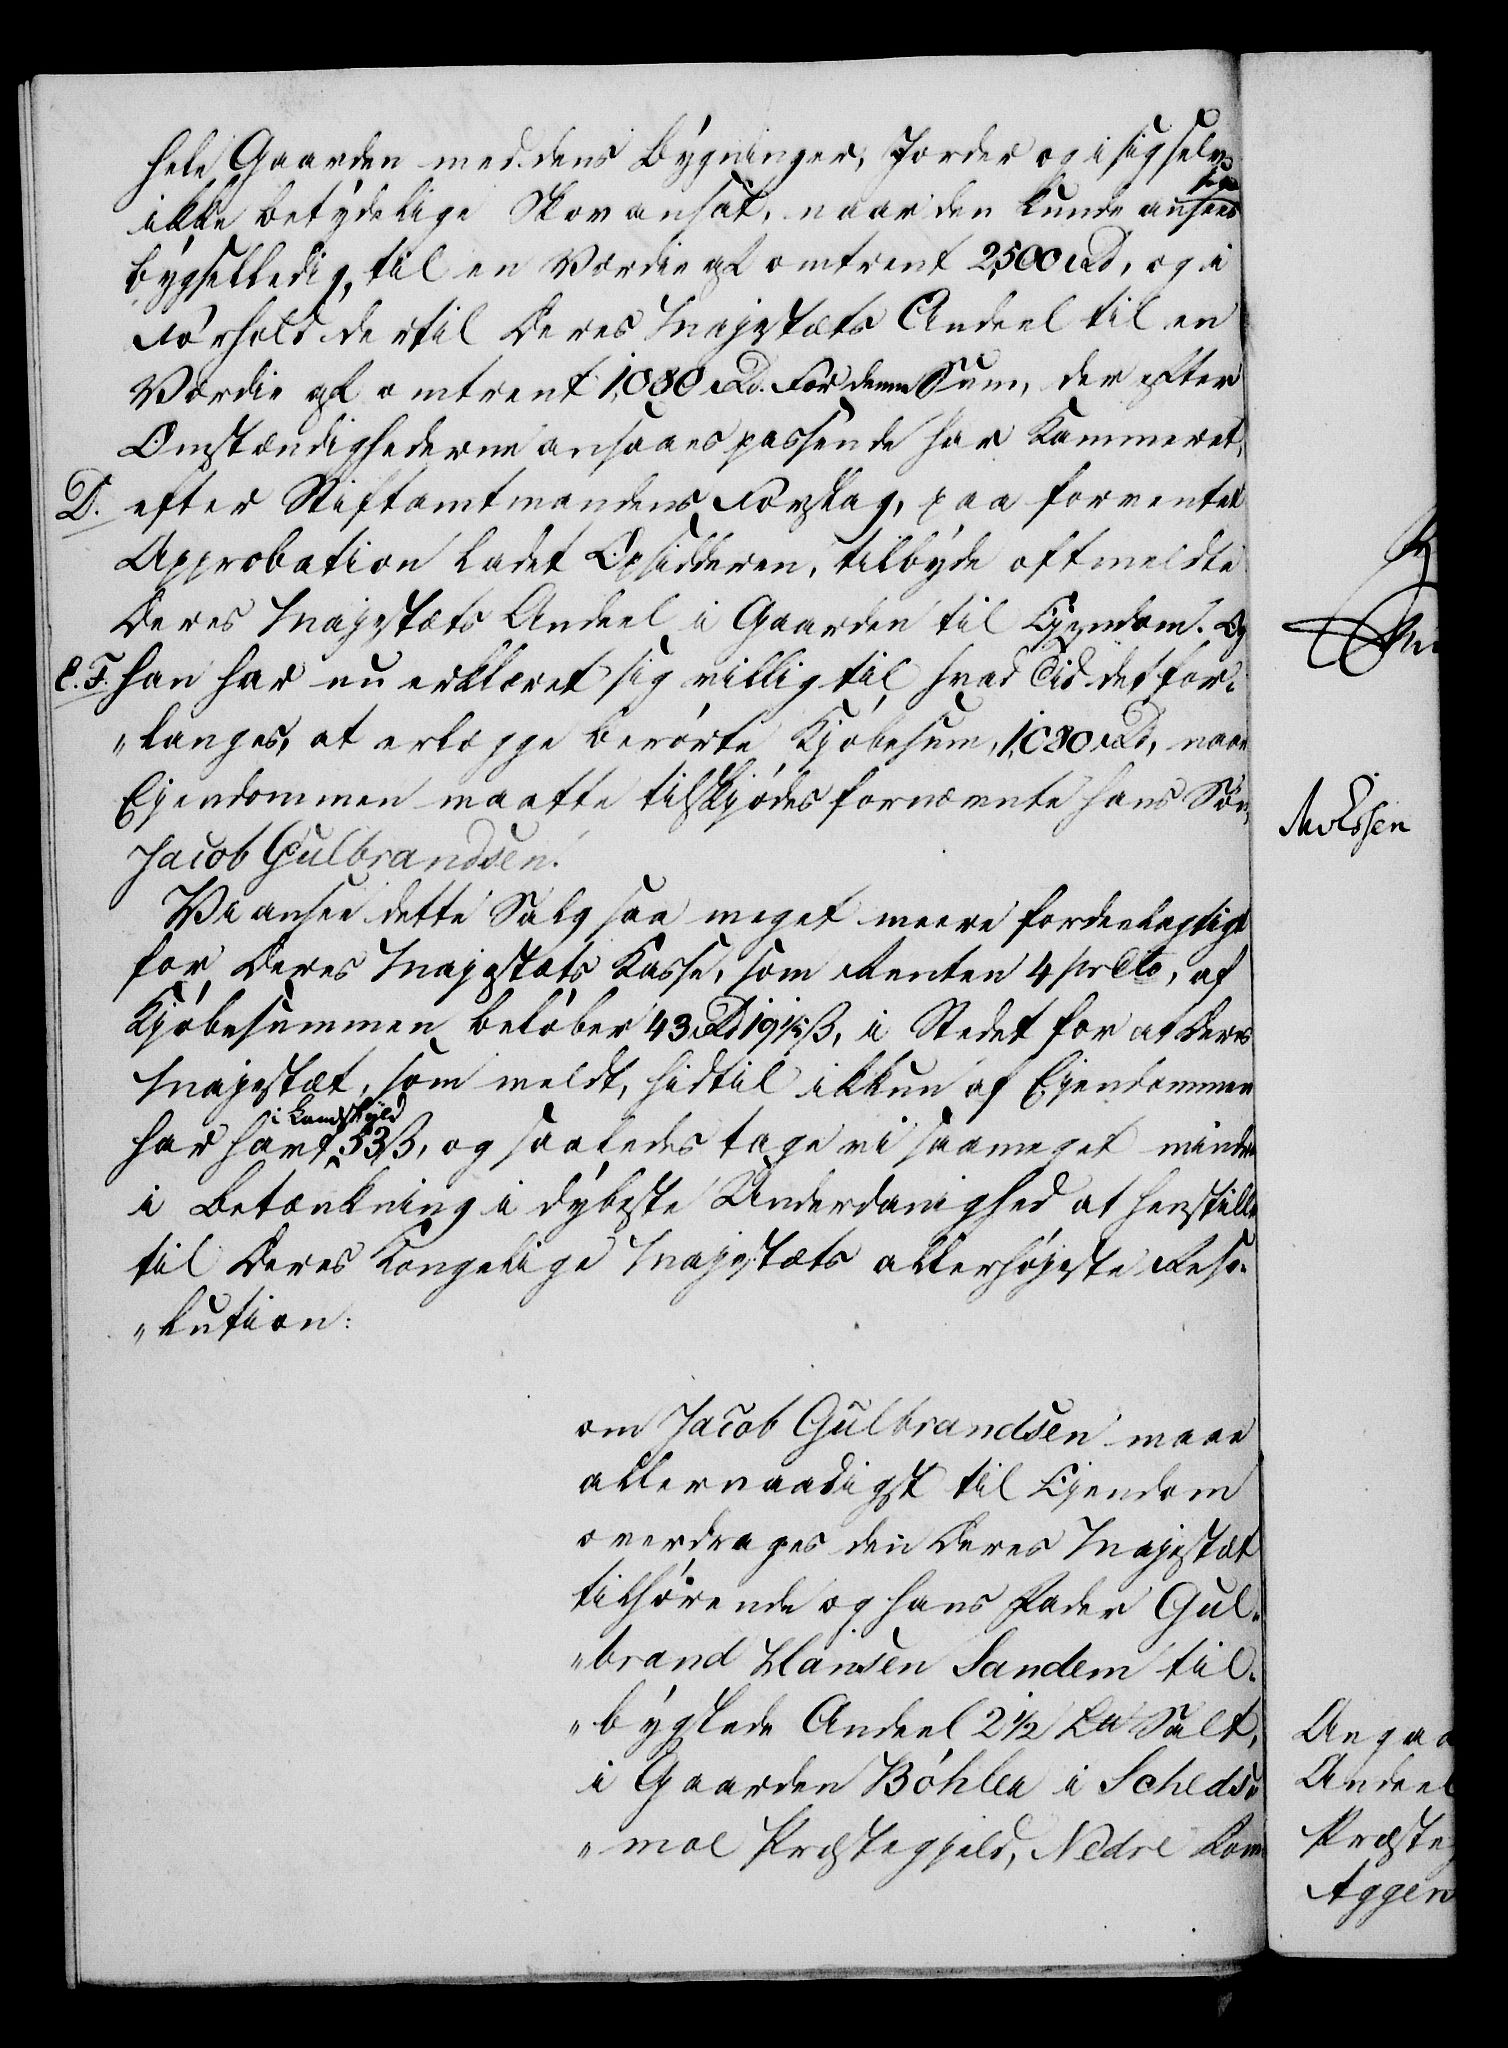 hele Gaarden med dens Bygninger, Jorder og i sig selv
ikke betydelige Skov ansat, naar den kunde ansees som
bygselledig, til en Værdie af omtrent 2,500 Rd, og i
Forhold dertil Deres Majestæts Andeel til en
Værdie af omtrent 1,080 Rd. For denne Sum, der efter
Omstændighederne ansaaes passende har Kammeret,
D. efter Stiftamtmandens Forslag, paa forventet
Approbation ladet Opsidderen, tilbyde oftmeldte
Deres Majestæts Andeel i Gaarden til Ejendom. Og
E. F. han har nu erklæret sig villig til, hvad Tid det for-
"langes, at erlægge berørte Kjøbesum, 1,080 Rd, naar
Ejendommen maatte tilskjødes fornævnte hans Søn,
Jacob Gulbrandsen.
Vi ansee dette Salg saa meget meere fordeelagtigt
for Deres Majestæts Kasse, som Renten 4 prCto, af
Kjøbesummen beløber 43 Rd 19 1/5 ß, i Stedet for at Deres
Majestæt, som meldt, hidtil ikkun af Ejendommen
har havt i Landskyld 53 ß, og saaledes tage vi saameget mindre
i Betænkning i dybeste Underdanighed at henstille
til Deres Kongelige Majestæts allerhøjeste Reso-
"lution:
om Jacob Gulbrandsen maae
allernaadigst til Ejendom
overdrages den Deres Majestæt
tilhørende og hans Fader Gul-
"brand Hansen Sandem til-
"bygslede Andeel 2 1/2 Lu Salt,
i Gaarden Bøhler i Scheds-
"moe Præstegjeld, Nedre Rom
Molssen
Angaa
Andeel
Præsteg
Agger